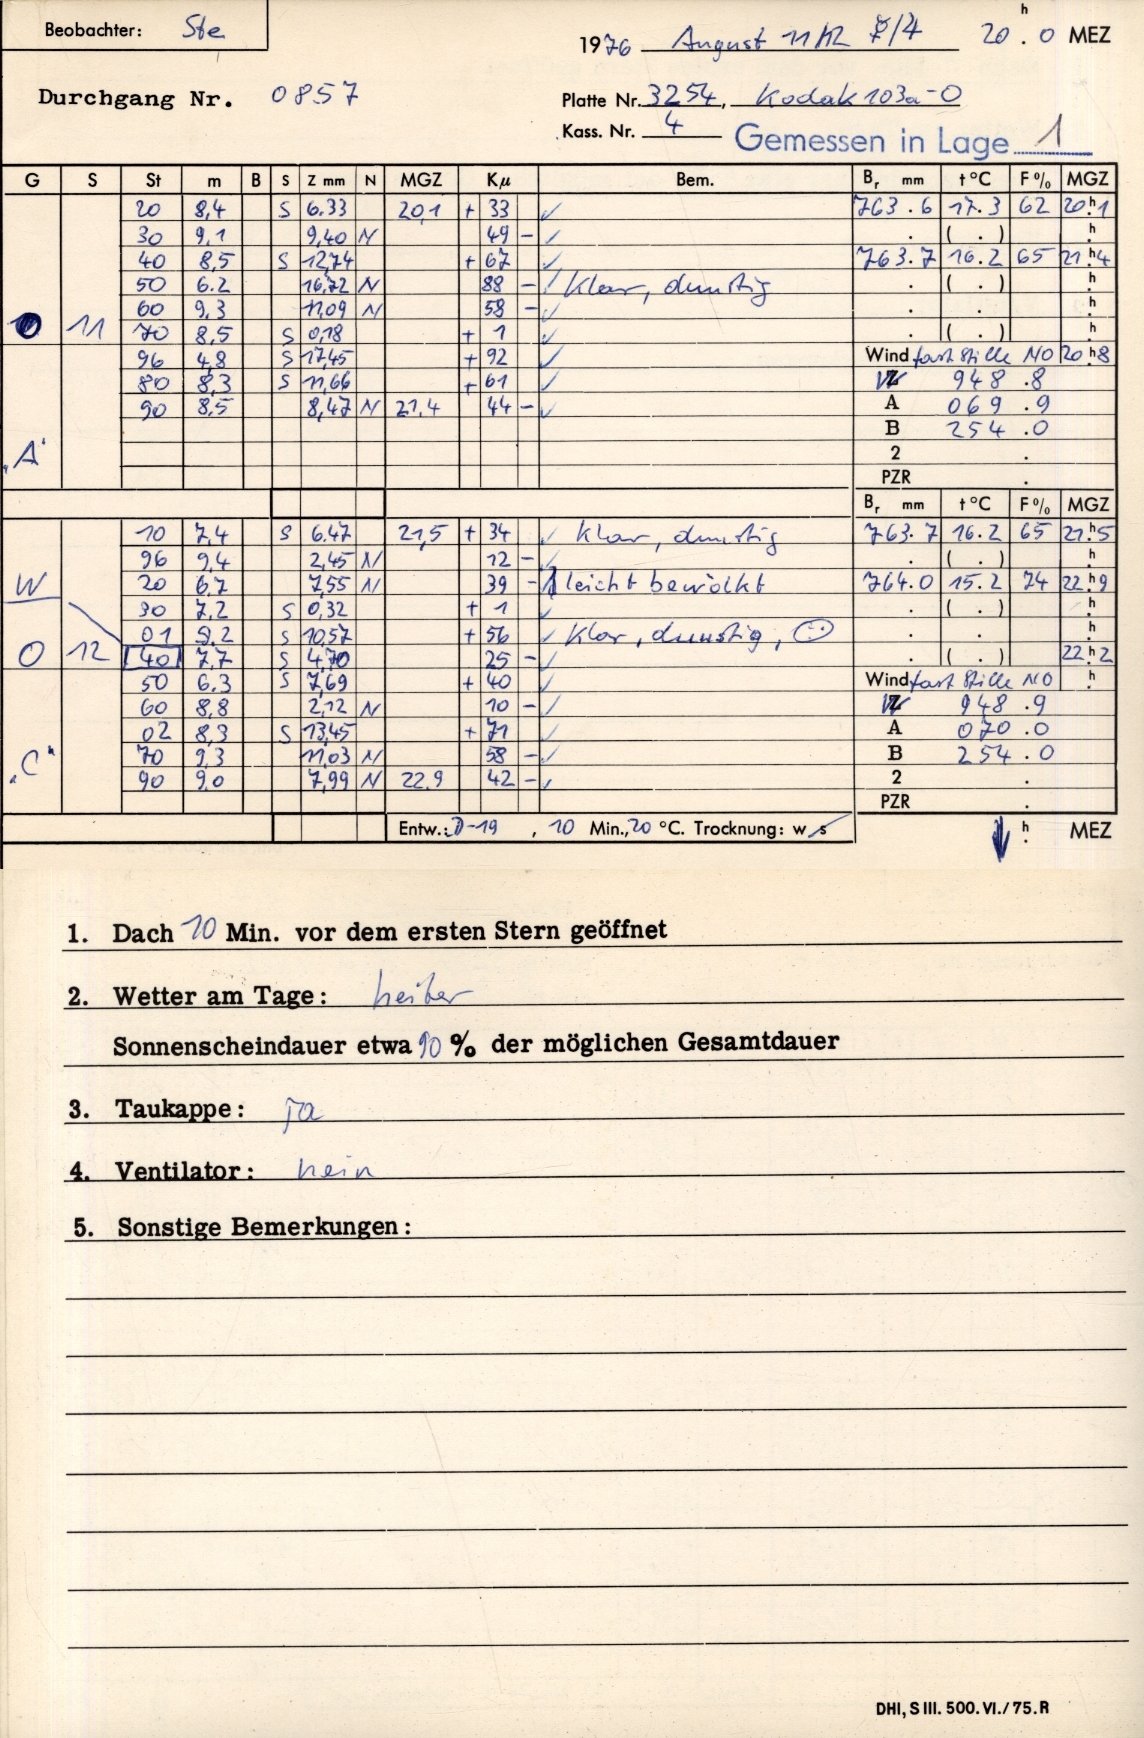 Beobachter: Ste
1976 August 11/12 ☿/♃ 20 h . 0 MEZ
Durchgang Nr. 0857
Platte Nr. 3254, Kodak 103a-O
Kass. Nr. 4 Gemessen in Lage 1
G S St m B S Z mm N MGZ Kμ Bem. Br mm t °C F % MGZ
20 8,4 S 6.33 20,1 + 33 ✓ 763.6 17.3 62 20h1
30 9,1 9,40 N 49 - ✓ . ( . ) h
40 8,5 S 12,74 + 67 ✓ 763.7 16.2 65 21h4
50 6.2 16,72 N 88 - ✓ Klar, dunstig . ( . ) h
60 9,3 11,09 N 58 - ✓ . . h
O 11 70 8,5 S 0,18 + 1 ✓ . ( . ) h
96 4,8 S 17,45 + 92 ✓ Wind fast Stille NO 20h8
80 8,3 S 11,66 + 61 ✓ Z 948.8
90 8,5 8,47 N 21,4 44 - ✓ A 069.9
B 254.0
„A“ 2 .
PZR .
Br mm t °C F % MGZ
10 7,4 S 6.47 21,5 + 34 ✓ Klar, dunstig 763.7 16.2 65 21h5
96 9,4 2,45 N 12 - ✓ . ( . ) h
W 20 6,7 7,55 N 39 - leicht bewölkt 764.0 15.2 74 22h9
30 7,2 S 0,32 + 1 ✓ . ( . ) h
01 9,2 S 10,57 + 56 ✓ Klar, dunstig, . . h
O 12 40 7,7 S 4,70 25 - ✓ . ( . ) 22h2
50 6.3 S 7,69 + 40 ✓ Wind fast Stille NO h
60 8,8 2,12 N 10 - ✓ Z 948.9
02 8,3 S 13,45 + 71 ✓ A 070.0
„C“ 70 9,3 11,03 N 58 - ✓ B 254.0
90 9,0 7,99 N 22.9 42 - ✓ 2 .
PZR .
Entw.: D-19, 10 Min., 20 °C. Trocknung: w s h MEZ
1. Dach 10 Min. vor dem ersten Stern geöffnet
2. Wetter am Tage: heiter
Sonnenscheindauer etwa 90 % der möglichen Gesamtdauer
3. Taukappe: ja
4. Ventilator: nein
5. Sonstige Bemerkungen:
DHI, S III. 500. VI./75. R